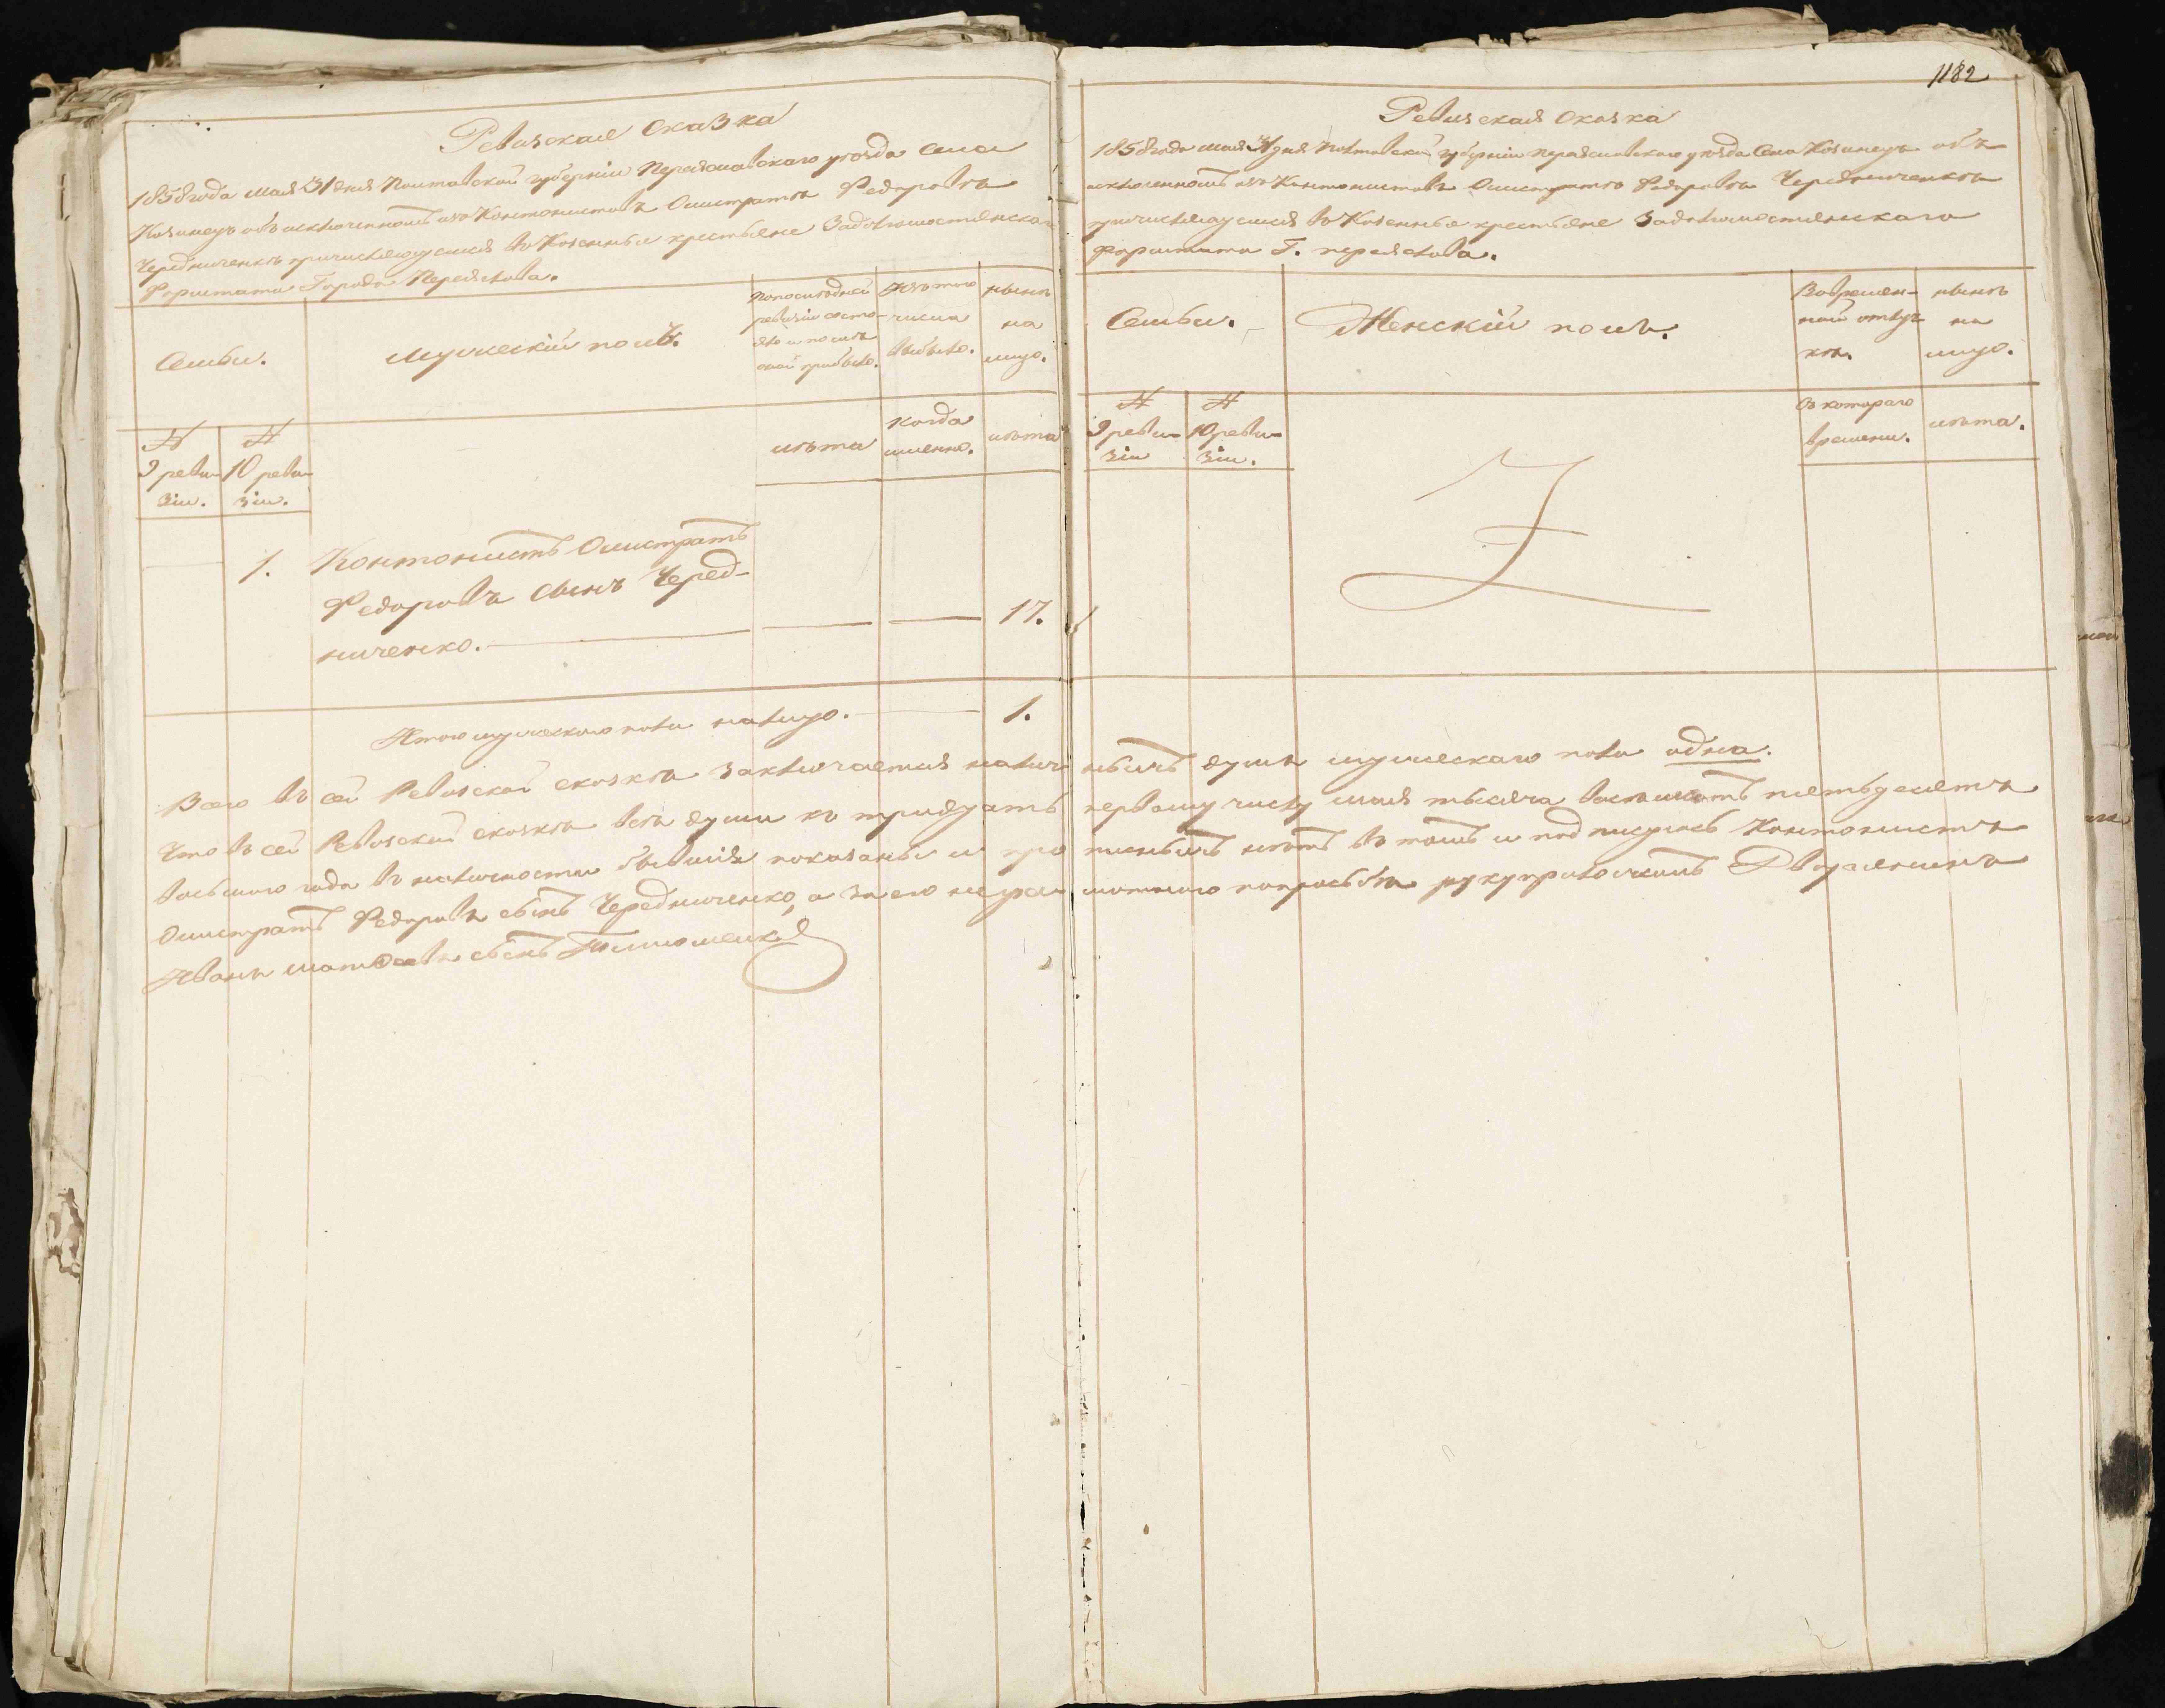 1182
Ревизская Сказка
1858 года мая 31 дня Полтавской губерніи Переяславскаго уезда Села
Козинецъ объ исключенномъ изъ Контонистовъ Омистратѣ Федоровѣ
Чередниченкѣ причисляющемся въ Козенные крестьяне Задолгомостянскаго
Форштата Города Переяслова.
Семьи.
Мужескій полъ.
По последней
ревизіи состо-
яло и после
оной прибыло.
Изъ того
числа
выбыло.
Нынѣ
на
лицо.
№
9 реви-
зіи.
№
10 реви-
зіи.
лѣта
Когда
именно.
лѣта
1. Контонистъ Омистратъ
Федоровъ сынъ Черед-
ниченко. 17.
Итого мужескаго пола налицо. 1.
Ревизская сказка
1858 года мая 31 дня Полтавской губерніи Переяславскаго уезда Села Козинецъ объ
исключенномъ изъ Контонистовъ Омистратѣ Федоровѣ Чередниченкѣ
причисляющемся въ Козенные крестьяне Задолгомостянскаго
форштата Г. переяслова.
Семьи.
Женскій полъ.
Во времен-
ной отлуч-
кѣ.
нынѣ
на
лицо.
№
9 реви-
зіи
№
10 реви-
зіи.
Съ котораго
времени.
лѣта.
Всего въ сей Ревизской сказкѣ заключается наличныхъ душъ мужескаго пола одна.
Что въ сей Ревизской сказкѣ всѣ души къ тридцать первому числу мая тысяча восемьсотъ пятьдесятъ
восьмого года въ наличности бывшія показаны и прописныхъ нѣтъ въ томъ и подписуюсь Контонистъ
Омистратъ Федоровъ сынъ Чередниченко, а за его неграмотнаго попрозьбѣ рукуприложилъ Дворянинъ
Иванъ Матвеевъ сынъ Тимошенко